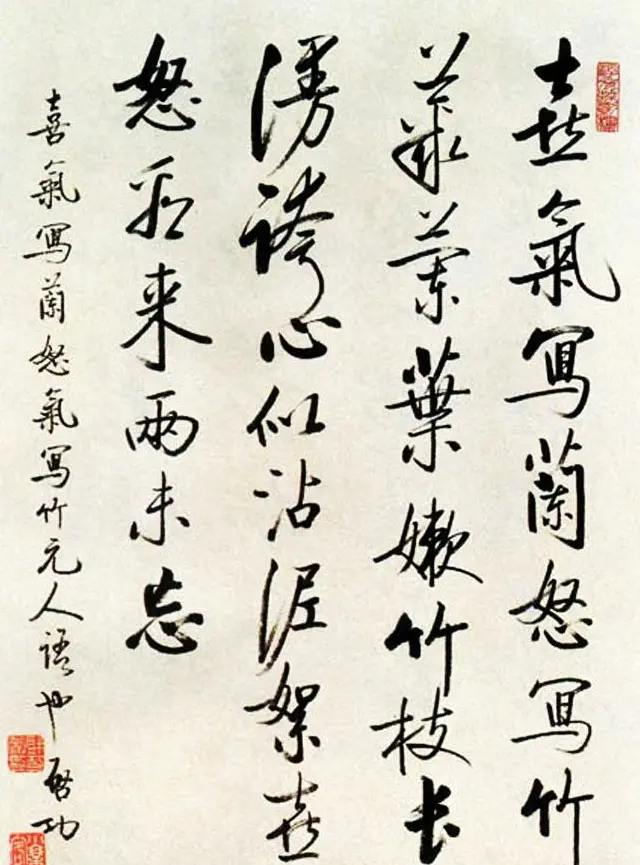 喜氣寫蘭怒寫竹
叢蘭葉嫩竹枝長
漫誇心似沾泥絮喜
怒看来兩未忘
喜氣寫蘭怒氣寫竹元人語也 啓功